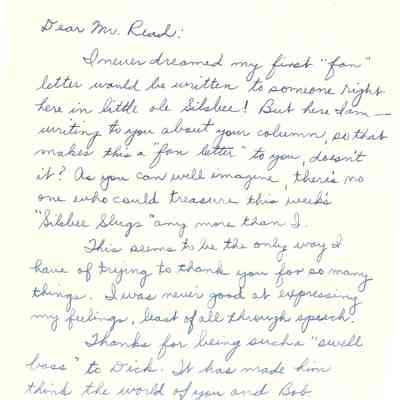 Dear Mr. Read:
I never dreamed my first "fan"
letter would be written to someone right
here in little ole Silsbee! But here I am —
writing to you about your column, so that
makes this a "fan letter" to you, doesn't
it? As you can well imagine, there's no
one who could treasure this week's
"Silsbee Slugs" any more than I.
This seems to be the only way I
have of trying to thank you for so many
things. I was never good at expressing
my feelings, least of all through speech.
Thanks for being such a "swell
boss" to Dick. It has made him
think the world of you and Bob